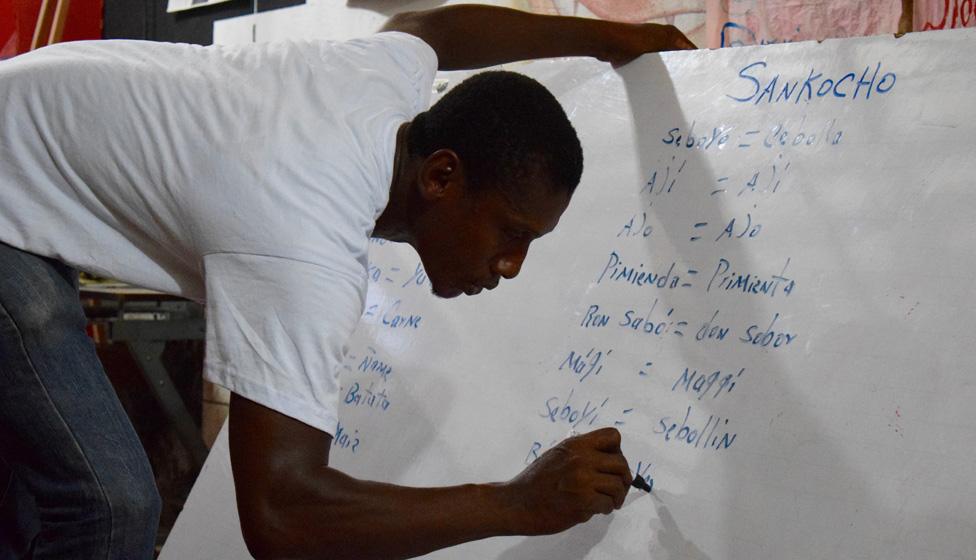 SANKOCHO
seboyo = Cebolla
Ají = Ají
Ajo = Ajo
Pimienda = Primienta
Ron Sabó = don sobor
Mági = Maggí
Seboyí = Sebollin
= Yu
= Carne
= Ñame
Batata
Maiz